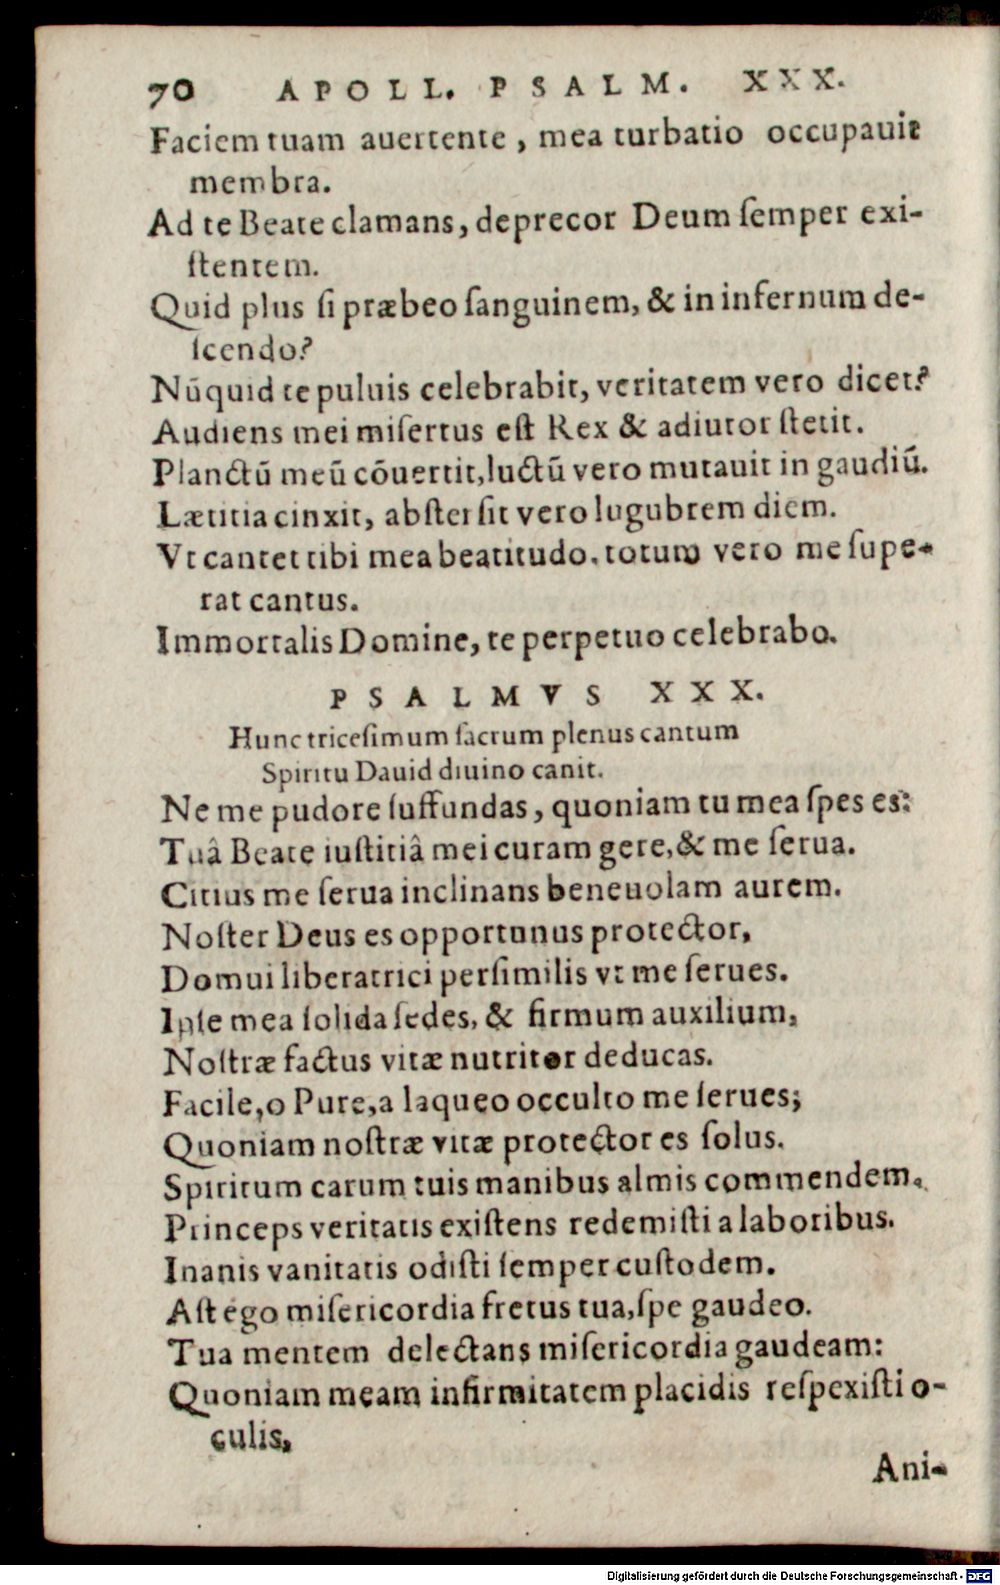 70 APOLL. PSALM. XXX.
Faciem tuam auertente, mea turbatio occupauit
membra.
Ad te Beate clamans, deprecor Deum ſemper exi-
ſtentem.
Quid plus ſi præbeo ſanguinem, & in infernum de-
ſcendo?
Nūquid te puluis celebrabit, veritatem vero dicet?
Audiens mei miſertus eſt Rex & adiutor ſtetit.
Planctū meū cōuertit, luctū vero mutauit in gaudiū.
Lætitia cinxit, abſterſit vero lugubrem diem.
Vt cantet tibi mea beatitudo. totum vero me ſupe-
rat cantus.
Immortalis Domine, te perpetuo celebrabo.
PSALMVS XXX.
Hunc triceſimum ſacrum plenus cantum
Spiritu Dauid diuino canit.
Ne me pudore ſuffundas, quoniam tu mea ſpes es:
Tuâ Beate iuſtitiâ mei curam gere, & me ſerua.
Citius me ſerua inclinans beneuolam aurem.
Noſter Deus es opportunus protector,
Domui liberatrici perſimilis vt me ſerues.
Ipſe mea ſolida ſedes, & firmum auxilium,
Noſtræ factus vitæ nutritor deducas.
Facile, o Pure, a laqueo occulto me ſerues;
Quoniam noſtræ vitæ protector es ſolus.
Spiritum carum tuis manibus almis commendem.
Princeps veritatis exiſtens redemiſti a laboribus.
Inanis vanitatis odiſti ſemper cuſtodem.
Aſt ego miſericordia fretus tua, ſpe gaudeo.
Tua mentem delectans miſericordia gaudeam:
Quoniam meam infirmitatem placidis reſpexiſti o-
culis,
Ani-
Digitalisierung gefördert durch die Deutsche Forschungsgemeinschaft - DFG